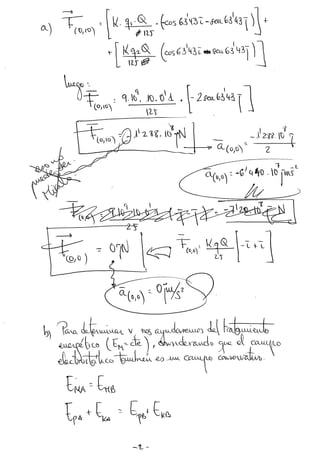 a) F(0,10) = [K·q1·Q/125 · (cos 63'43 i - sen 63'43 j)] +
+ [K q2 Q/125 (cos 63'43 i sen 63'43 j)]
luego:
F(0,10) = 9·10⁹·10·0'1/125 · [-2 sen 63'43 j]
F(0,10) = -1'288·10⁸ j N
a(0,0) = -1'288·10⁸ j / 2
a(0,0) = -6'440·10⁷ j m s⁻²
F(0,0) = K q Q/25 [-i + i]
F(0,0) = 0 j N
a(0,0) = 0 j m/s²
b) Para determinar v, nos ayudaremos del tratamiento
energético (EM = cte), considerando que el campo
electrostático también es un campo conservativo.
EMA = EMB
EPA + EKA = EPB + EKB
-2-